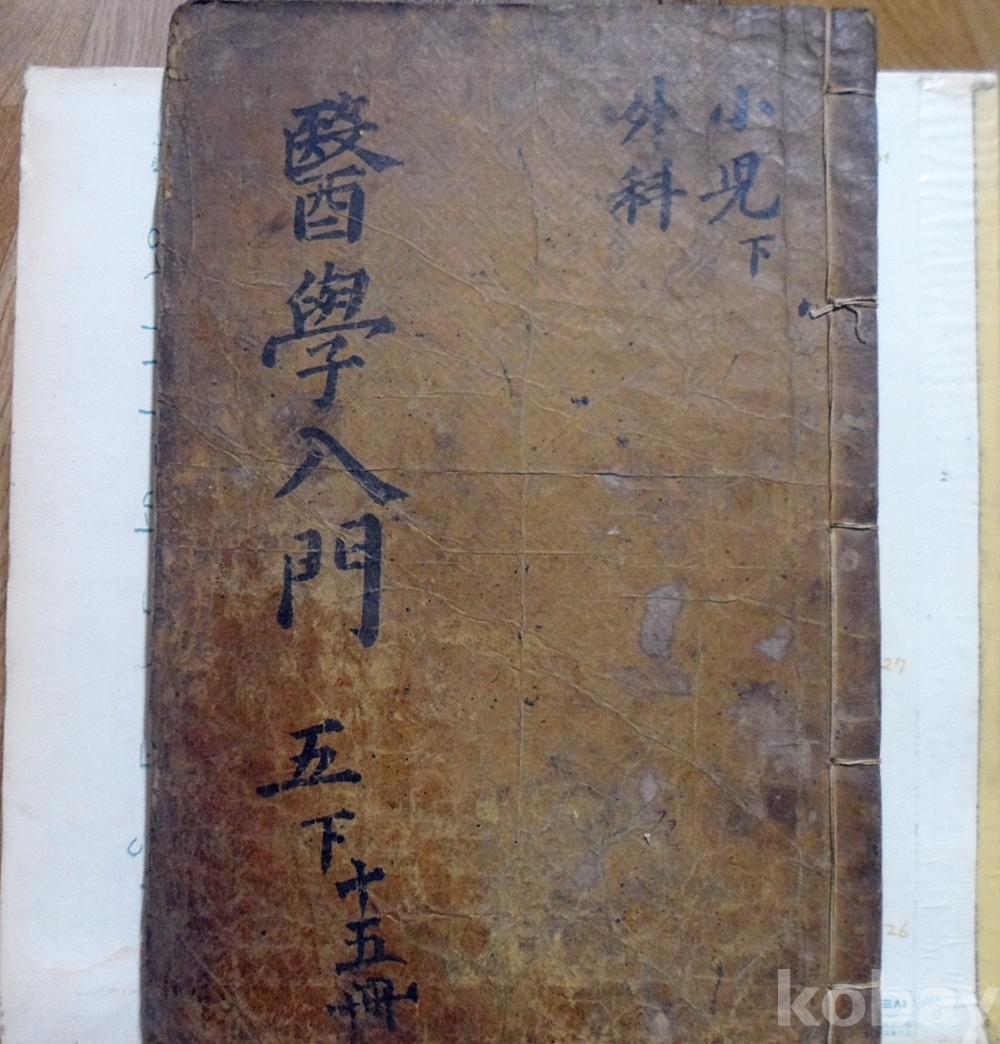 小児下
外科
醫學入門 五下 十五冊
27
26
kobay